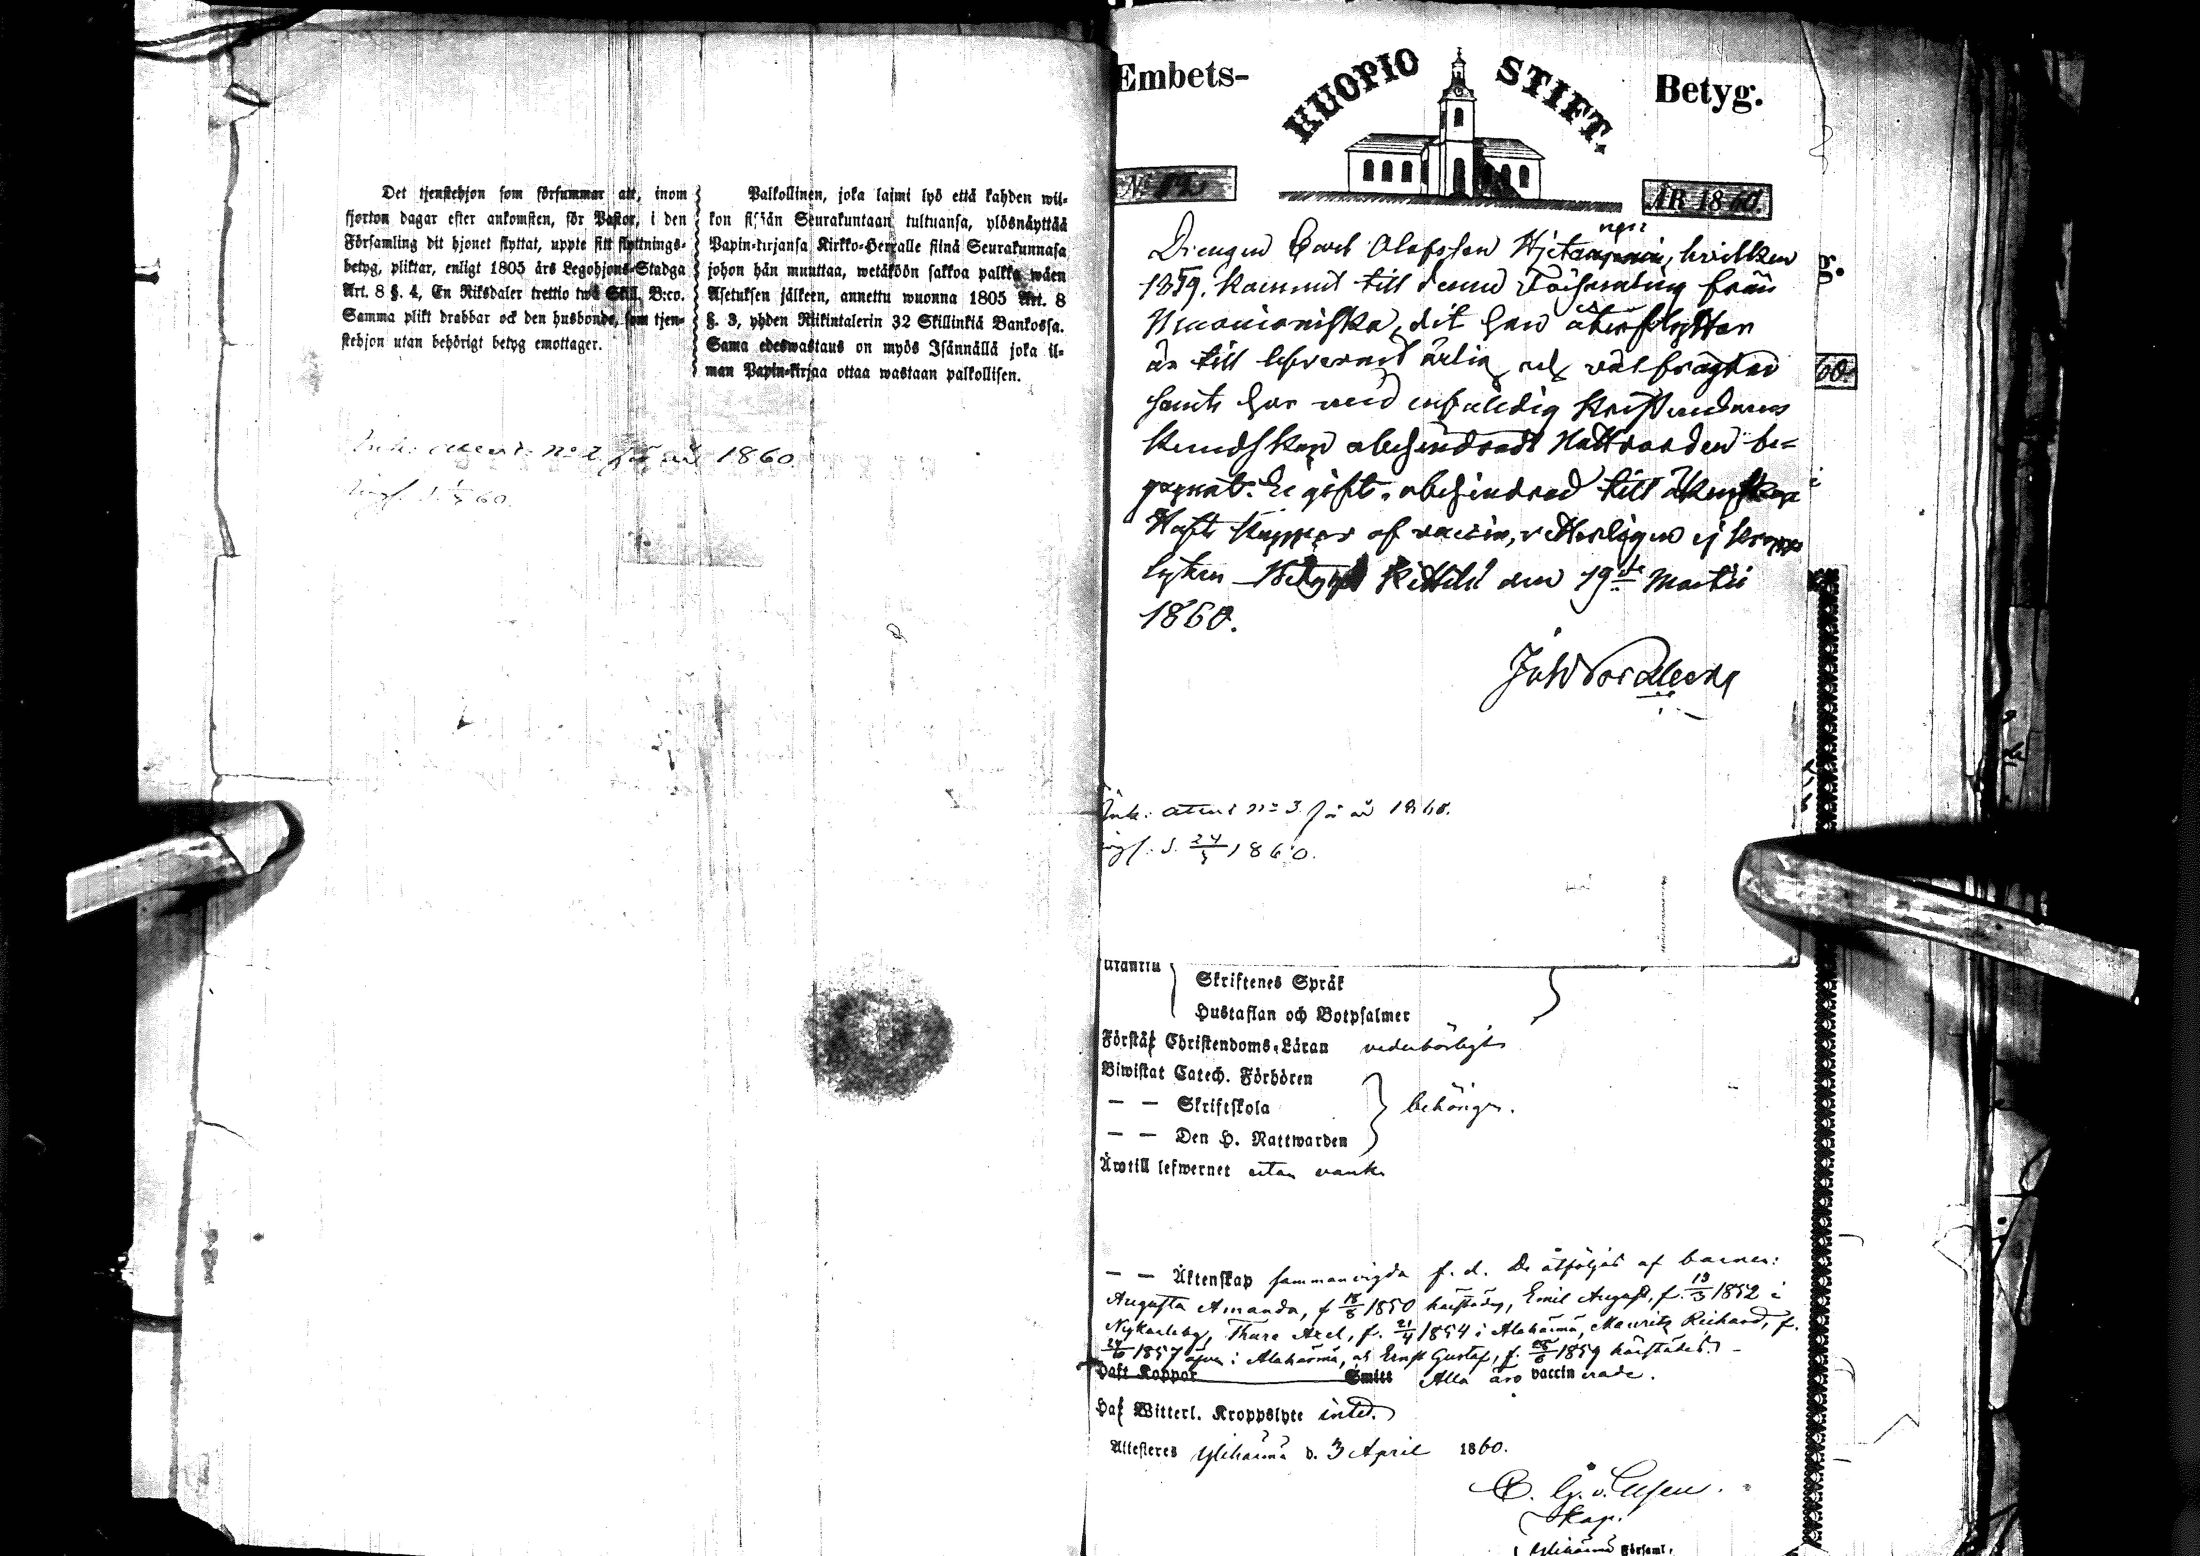 Det tjenstehjon som försummar att, inom
fjorton dagar efter ankomsten, för Pastor, i den
Församling dit hjonet flyttat, uppte sitt flyttnings-
betyg, pliktar, enligt 1805 års Legohjons-Stadga
Art. 8 §. 4, En Riksdaler trettio twå Skill. B:co.
Samma plikt drabbar ock den husbonde, som tjen-
stehjon utan behörigt betyg emottager.
Palkollinen, joka laimi lyö että kahden wii-
kon sisään Seurakuntaan tultuansa, ylösnäyttää
Papin-kirjansa Kirkko-Herralle siinä Seurakunnasa
johon hän muuttaa, wetäköön sakkoa palkka wäen
Asetuksen jälkeen, annettu wuonna 1805 Art. 8
§. 3, yhden Riikintalerin 32 Skillinkiä Bankossa.
Sama edeswastaus on myös Isännällä joka il-
man Papin-kirjaa ottaa wastaan palkollisen.
Ink: attest: no 2 för år 1860.
60.
Embets- KUOPIO STIFT. Betyg.
No ÅR 1860.
Drengen Carl Olofsson hvilken
1859. kommit till denna Församling från
Muonioniska, dit han återflyttar
är till lefvernet ärlig och väl frägdad
samt har med enfaldig Kristendoms
kundskap obehindradt Nattvarden be-
gagnat. Ej gift, obehindrad till äktenskap
Haft koppor af vaccin, vetterligen ej kropps
lyten. Betygar Kittilä den 19de Martii
1860.
60.
Ink: attest no 3 för år 1860.
d. 24/5 1860.
Skriftenes Språk
Hustaflan och Botpsalmer
Förstår Christendoms-Läran vederbörligt
Biwistat Catech. Förhören
— — Skriftskola behörigen.
— — Den H. Nattwarden
Äro till lefwernet utan vank
— — Äktenskap sammanvigda f. d. De åtföljas af barnen:
Augusta Amanda, f 18/8 1850 härstädes, Emil August, f. 13/3 1852 i
Nykarleby, Thure Axel, f. 21/4 1854 i Alahärmä, Mauritz Richard, f.
1857 äfven i Alahärmä, och Ernst Gustaf, f. 1859 härstädes. –
Haft Koppor Smitt Alla äro vaccinerade.
Haf Witterl. Kroppslyte intet.
Attesteres Ylihärmä d. 3 April 1860.
Kap.
Ylihärmä Församl.